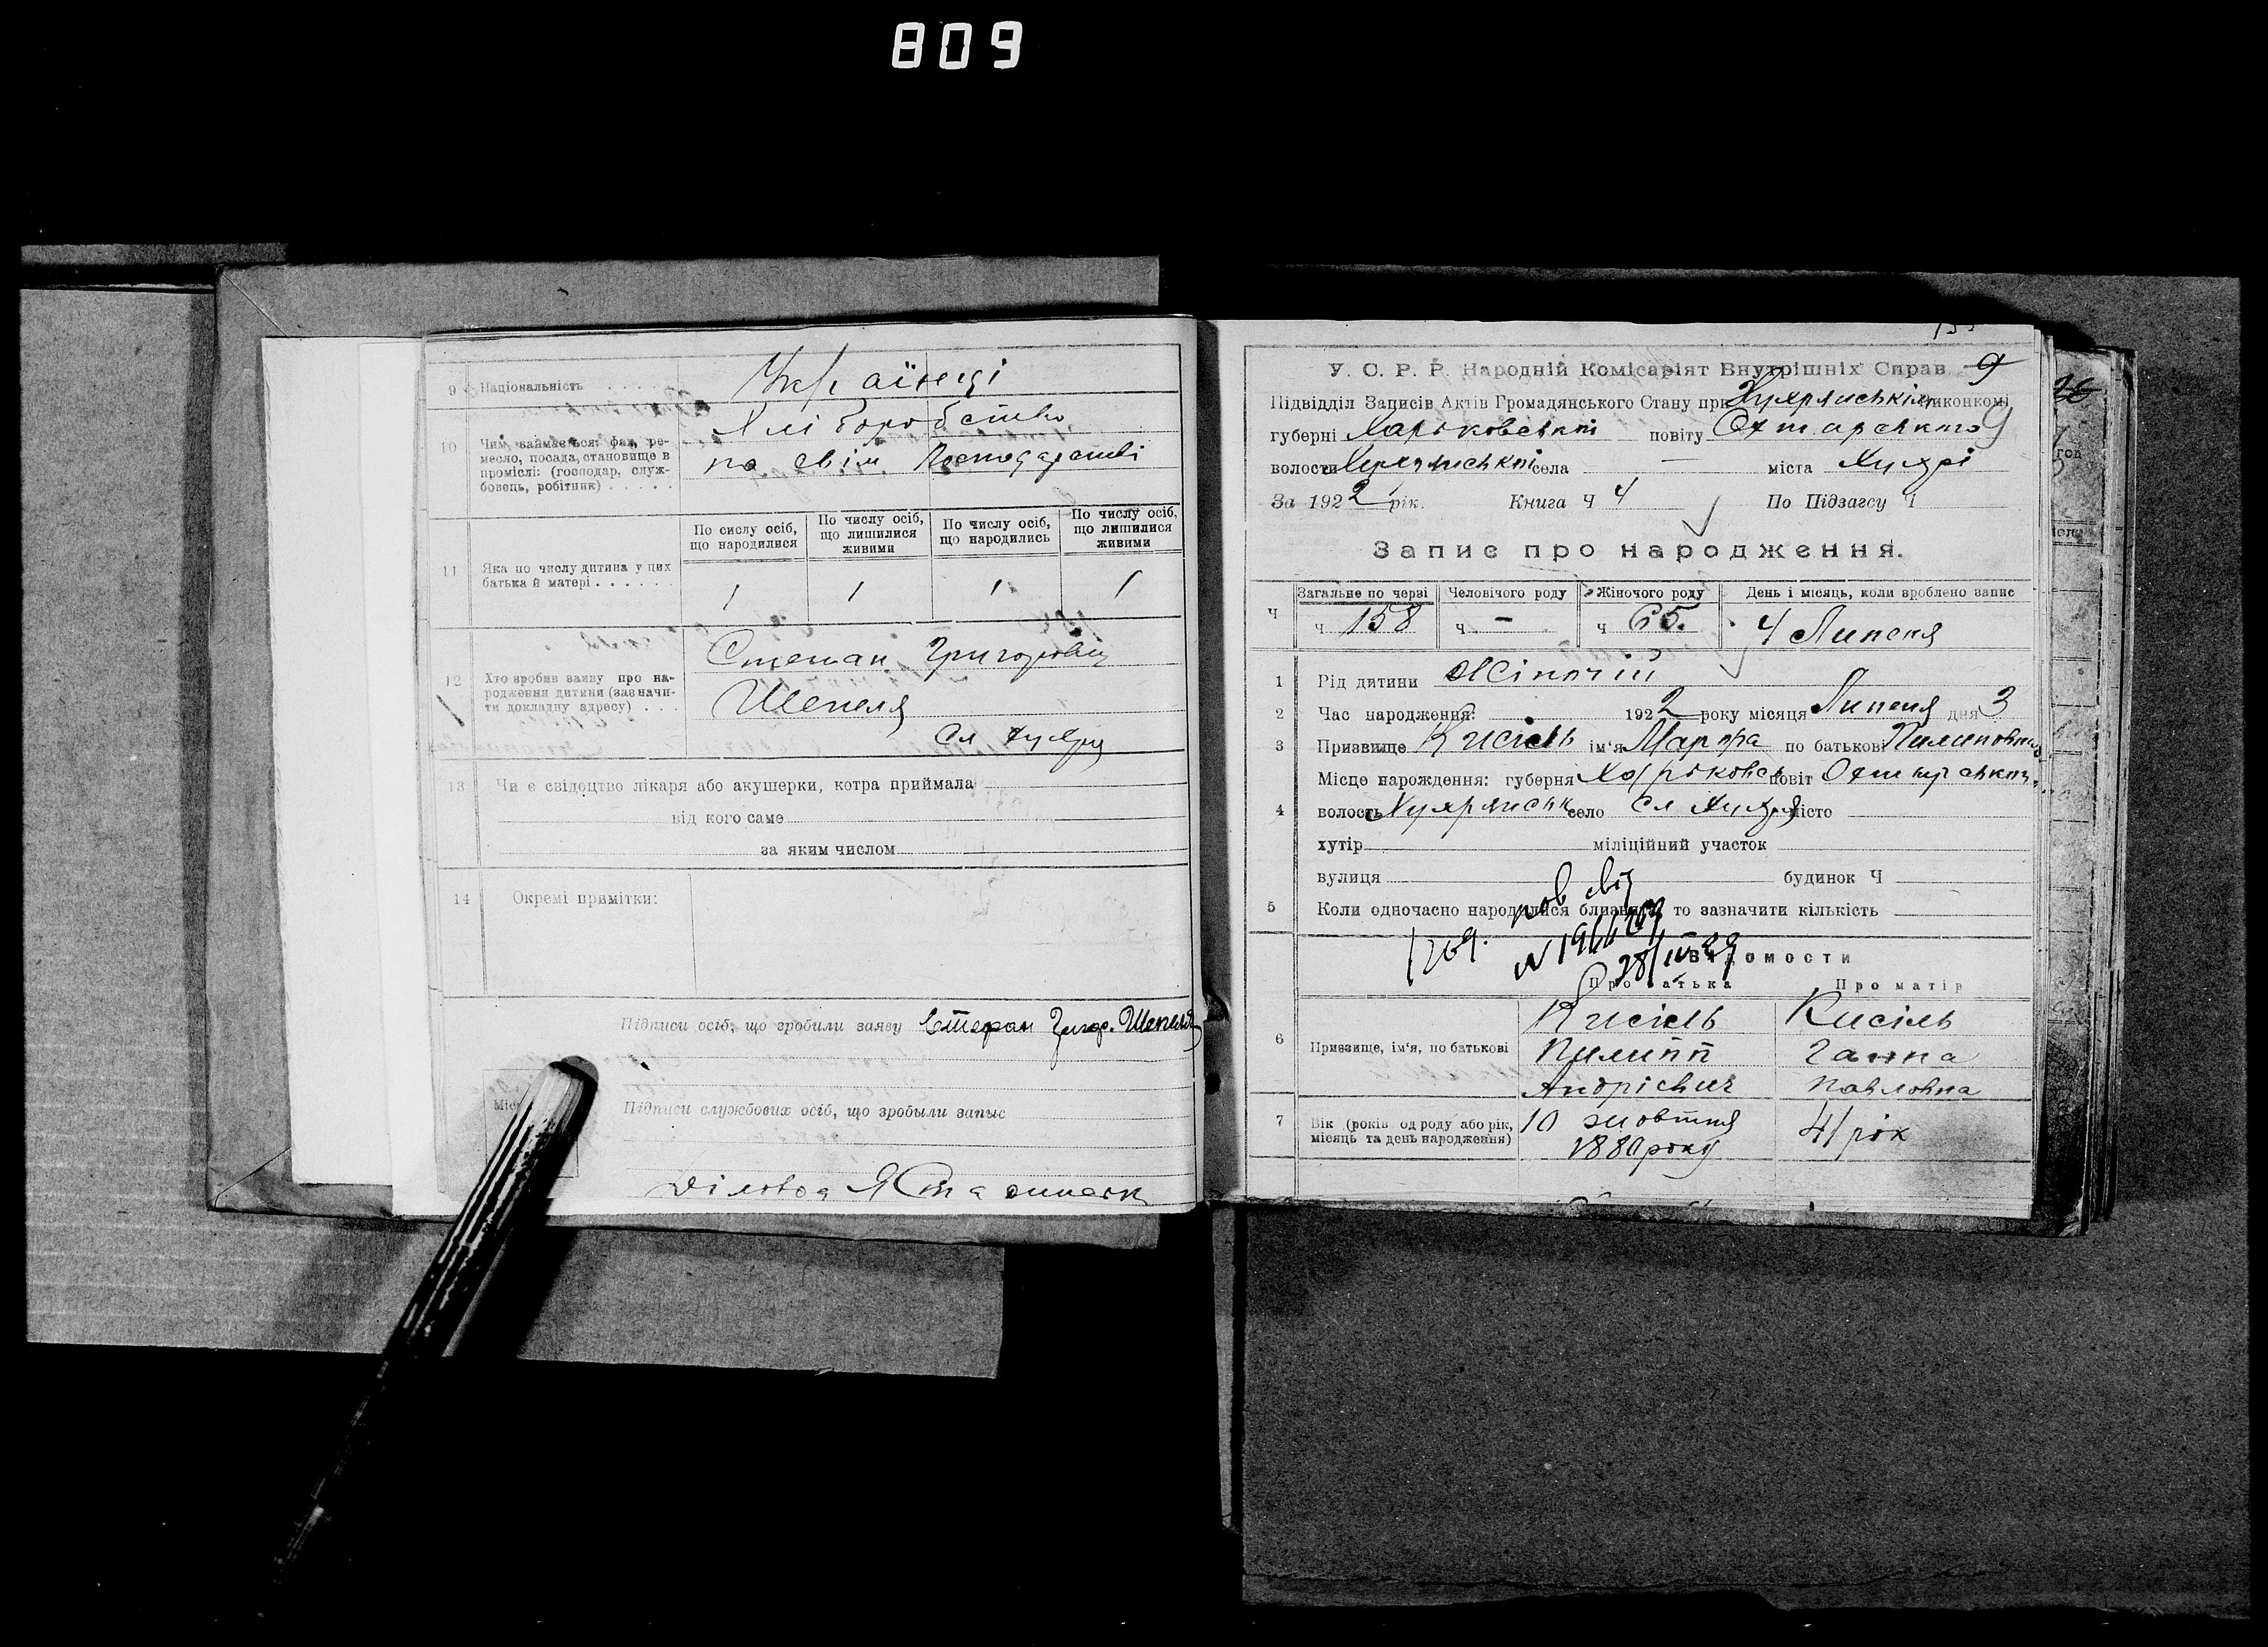 809
9 Національність Українці
10 Чим займається: фах, ре-
месло, посада, становище в
промислі: (господар, служ-
бовець, робітник)
Хліборобство
на свім господарстві
11 Яка по числу дитина у цих
батька й матері
По сислу осіб, що народилися
По числу осіб, що лишилися живими
По числу осіб, що народились
По числу осіб, що лишилися живими
1 1 1 1
12 Хто вробив заяву про на-
родження дитини (зазначи-
ти докладну адресу)
Степан Григорович
Шепеля
Сл Хухря
13 Чи є свідоцтво лікаря або акушерки, котра приймала
від кого саме
за яким числом
14 Окремі примітки:
Підписи осіб, що зробили заяву Степан Григор. Шепеля
Підписи службових осіб, що зробыли запыс
У. С. Р. Р. Народній Комісаріят Внутрішніх Справ 9
Підвідділ Записів Актів Громадянського Стану при Хухрянськім виконкомі
губерні Харьковськой повіту
волости села — міста Хухрі
За 1922 рік. Книга Ч 4 По Підзагсу Ч
Запис про народження.
Загальне по черзі Человічого роду Жіночого роду День і місяць, коли зроблено запис
Ч ч 158 ч - ч 65. 4 Липеня
1 Рід дитини Жіночій
2 Час народження: 1922 року місяця Липеня дня 3
3 Призвище Кисіль ім'я по батькові Пилиповна
Місце нарождення: губерня Харьковсь повіт
4 волость село Сл Хухря місто
хутір міліційний участок
вулиця будинок Ч
5 Коли одночасно народилися близнята то зазначити кількість
Відомости
Про батька Про матір
6 Призвище, ім'я, по батькові
Кисіль Кисіль
Пилипп Ганна
Андрієвич Павловна
7 Вік (років од роду або рік,
місяць та день народження)
10 жовтня 41 рік
1880 року